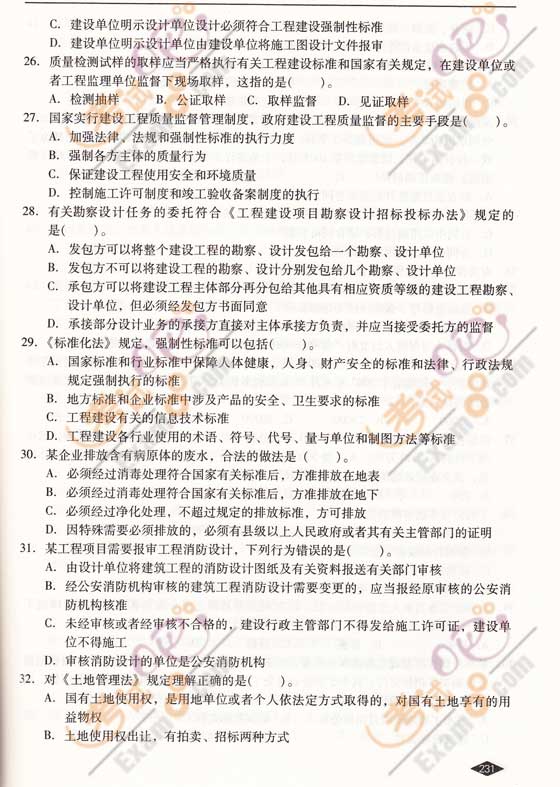 C. 建设单位明示设计单位设计必须符合工程建设强制性标准
D. 建设单位明示设计单位由建设单位将施工图设计文件报审
26. 质量检测试样的取样应当严格执行有关工程建设标准和国家有关规定，在建设单位或
者工程监理单位监督下现场取样，这指的是( )。
A. 检测抽样 B. 公证取样 C. 取样监督 D. 见证取样
27. 国家实行建设工程质量监督管理制度，政府建设工程质量监督的主要手段是( )。
A. 加强法律、法规和强制性标准的执行力度
B. 强制各方主体的质量行为
C. 保证建设工程使用安全和环境质量
D. 控制施工许可制度和竣工验收备案制度的执行
28. 有关勘察设计任务的委托符合《工程建设项目勘察设计招标投标办法》规定的
是( )。
A. 发包方可以将整个建设工程的勘察、设计发包给一个勘察、设计单位
B. 发包方不可以将建设工程的勘察、设计分别发包给几个勘察、设计单位
C. 承包方可以将建设工程主体部分再分包给其他具有相应资质等级的建设工程勘察、
设计单位，但必须经发包方书面同意
D. 承接部分设计业务的承接方直接对主体承接方负责，并应当接受委托方的监督
29. 《标准化法》规定，强制性标准可以包括( )。
A. 国家标准和行业标准中保障人体健康，人身、财产安全的标准和法律、行政法规
规定强制执行的标准
B. 地方标准和企业标准中涉及产品的安全、卫生要求的标准
C. 工程建设有关的信息技术标准
D. 工程建设各行业使用的术语、符号、代号、量与单位和制图方法等标准
30. 某企业排放含有病原体的废水，合法的做法是 ( )。
A. 必须经过消毒处理符合国家有关标准后，方准排放在地表
B. 必须经过消毒处理符合国家有关标准后，方准排放在地下
C. 必须经过净化处理，不超过规定的排放标准，方可排放
D. 因特殊需要必须排放的，必须有县级以上人民政府或者其有关主管部门的证明
31. 某工程项目需要报审工程消防设计，下列行为错误的是( )。
A. 由设计单位将建筑工程的消防设计图纸及有关资料报送有关部门审核
B. 经公安消防机构审核的建筑工程消防设计需要变更的，应当报经原审核的公安消
防机构核准
C. 未经审核或者经审核不合格的，建设行政主管部门不得发给施工许可证，建设单
位不得施工
D. 审核消防设计的单位是公安消防机构
32. 对《土地管理法》规定理解正确的是( )。
A. 国有土地使用权，是用地单位或者个人依法定方式取得的，对国有土地享有的用
益物权
B. 土地使用权出让，有拍卖、招标两种方式
231
考试 Exam8.com